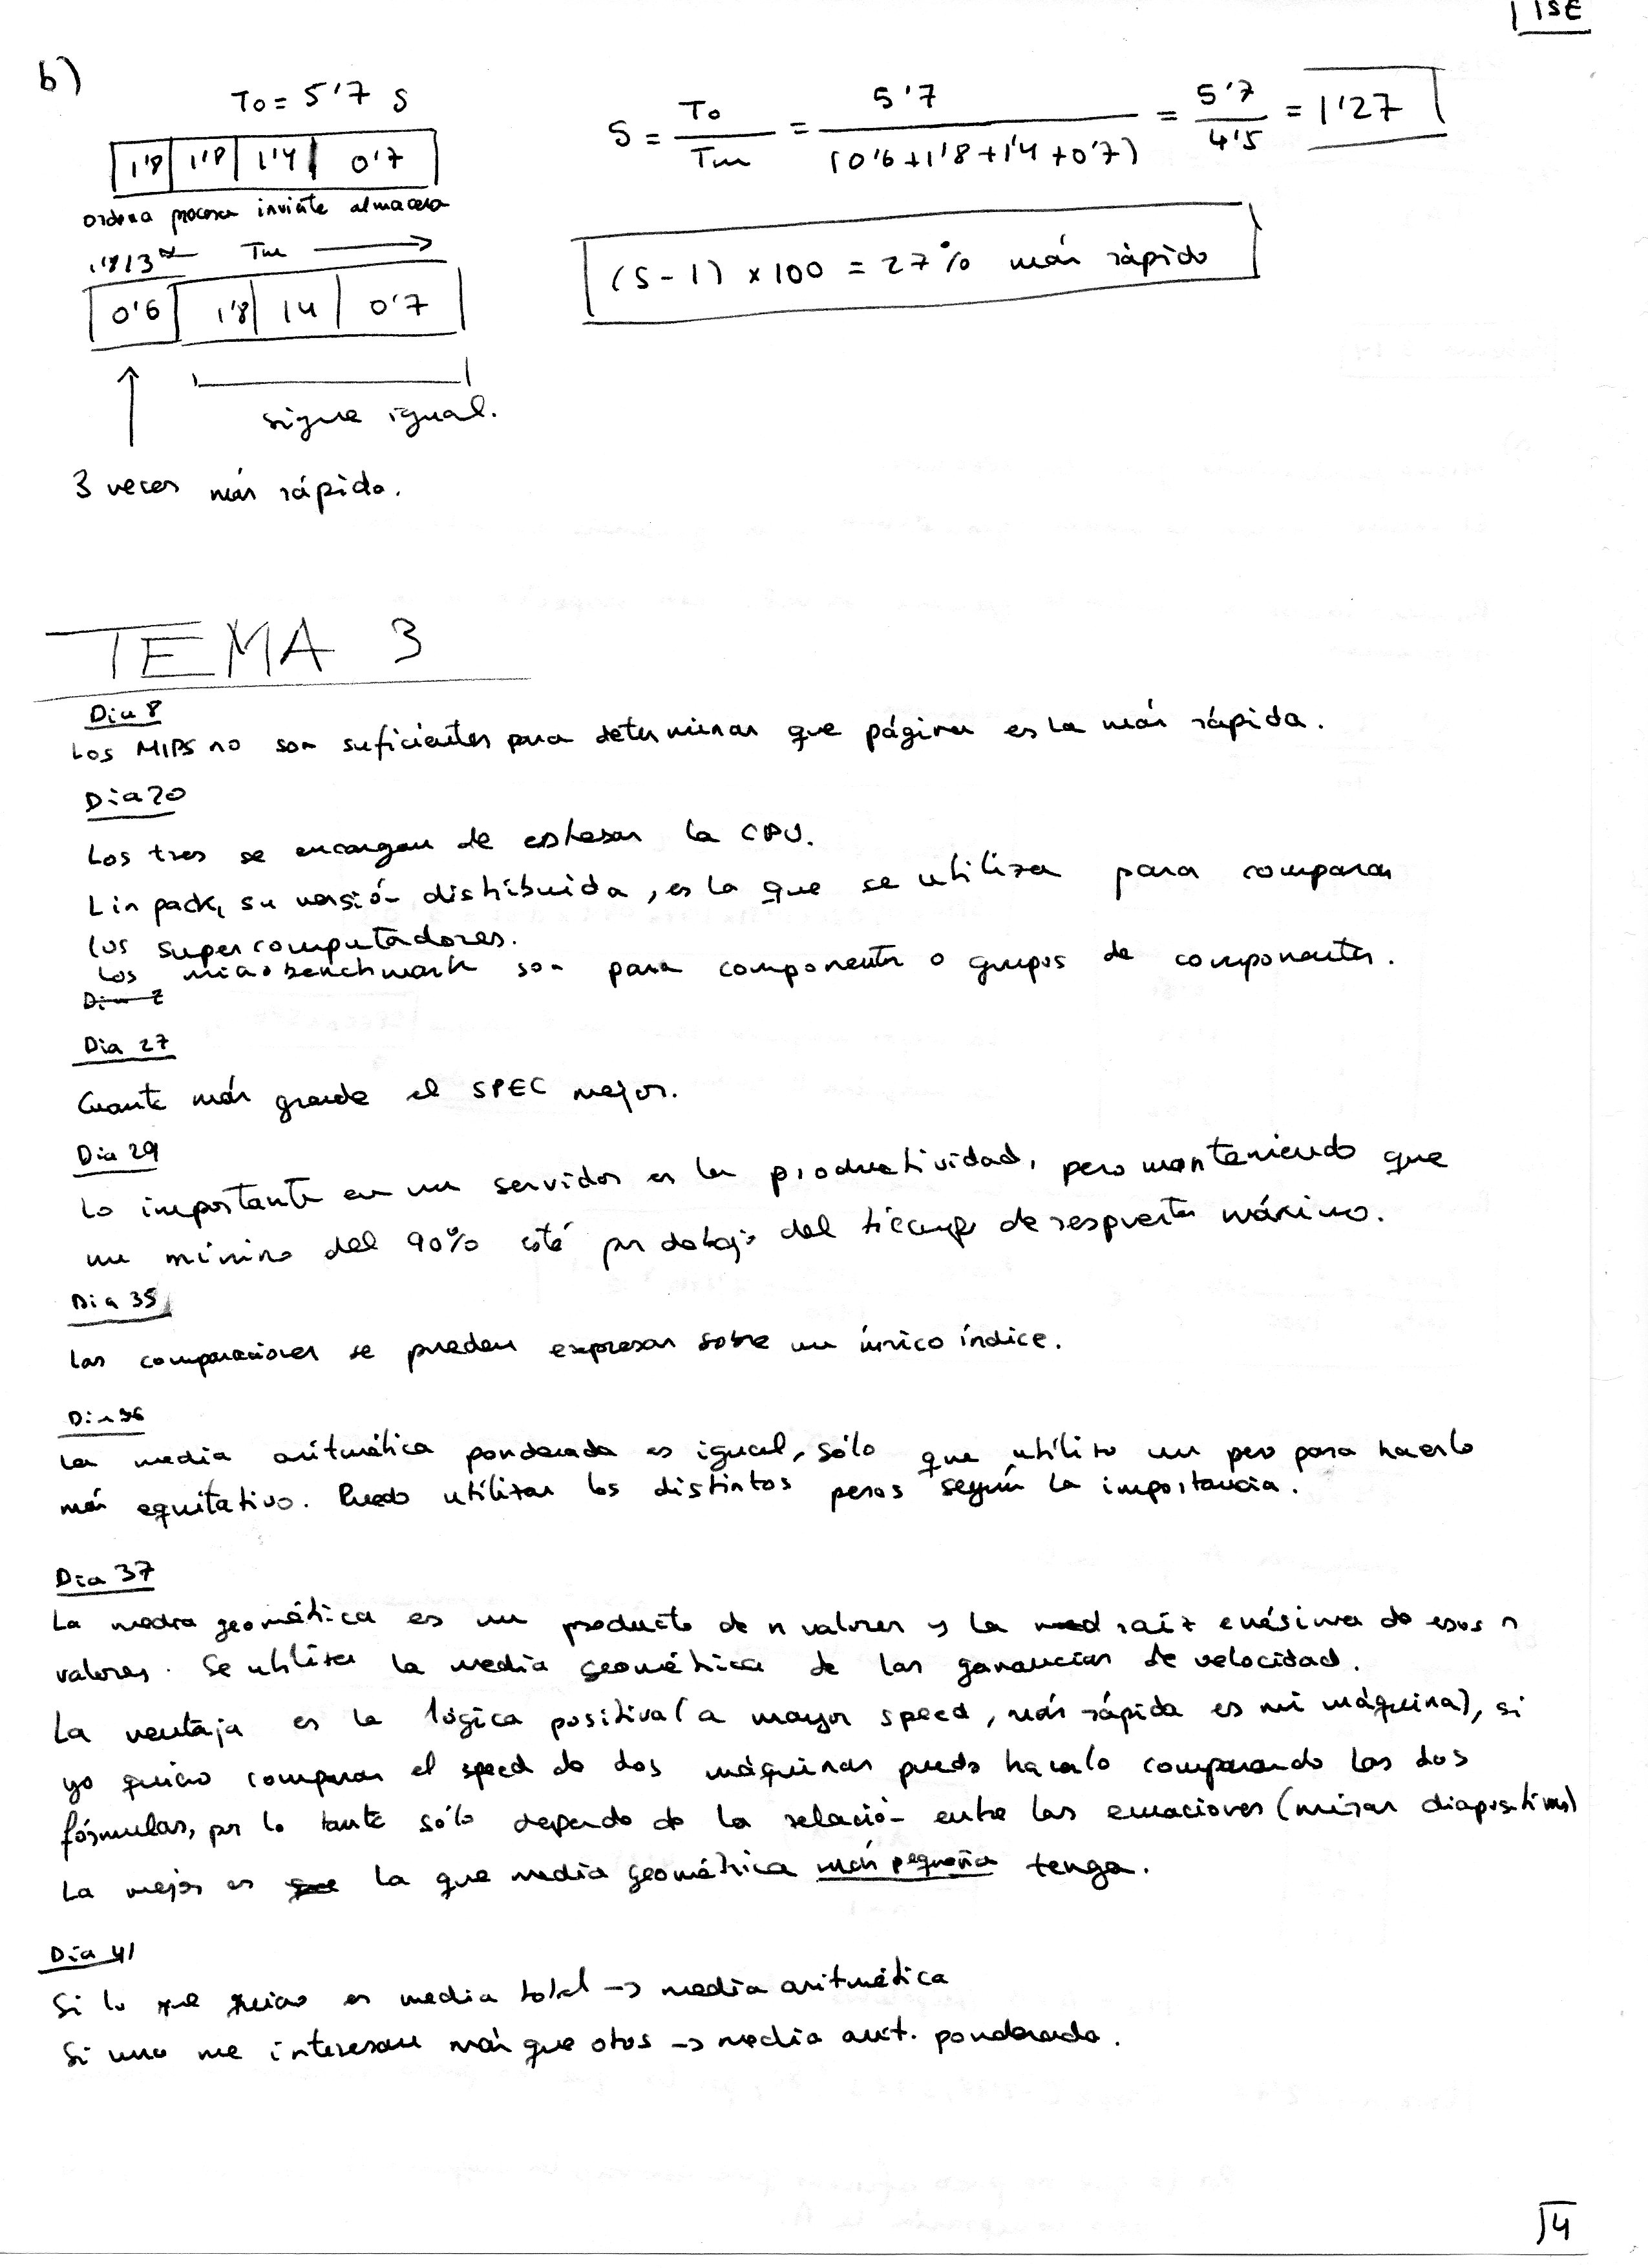 ISE
b)
To = 5'7 s
1'8 | 1'8 | 1'4 | 0'7
ordena procesa invierte almacena
1'8/3 Tm →
0'6 | 1'8 | 1'4 | 0'7
sigue igual.
3 veces más rápido.
S = To / Tm = 5'7 / (0'6 + 1'8 + 1'4 + 0'7) = 5'7 / 4'5 = 1'27
(S - 1) x 100 = 27% más rápido
TEMA 3
Dia 8
Los MIPS no son suficientes para determinar que página es la más rápida.
Dia 20
Los tres se encargan de estresar la CPU.
Linpack, su versión distribuida, es la que se utiliza para comparar
los supercomputadores.
Los microbenchmark son para componente o grupos de componentes.
Dia 2
Dia 27
Cuanto más grande el SPEC mejor.
Dia 29
Lo importante en un servidor es la productividad, pero manteniendo que
un mínimo del 90% esté por debajo del tiempo de respuesta máximo.
Dia 35
Las comparaciones se pueden expresar sobre un único índice.
Dia 36
La media aritmética ponderada es igual, sólo que utilizo un peso para hacerlo
más equitativo. Puedo utilizar los distintos pesos según la importancia.
Dia 37
La media geométrica es un producto de n valores y la med raíz enésima de esos n
valores. Se utiliza la media geométrica de las ganancias de velocidad.
La ventaja es la lógica positiva (a mayor speed, más rápida es mi máquina), si
yo quiero comparar el speed de dos máquinas puedo hacerlo comparando las dos
fórmulas, por lo tanto sólo depende de la relación entre las ecuaciones (mirar diapositivas)
La mejor es que la que media geométrica más pequeña tenga.
Dia 41
Si lo que quiero es media total -> media aritmética
Si uno me interesan más que otos -> media arit. ponderada.
14